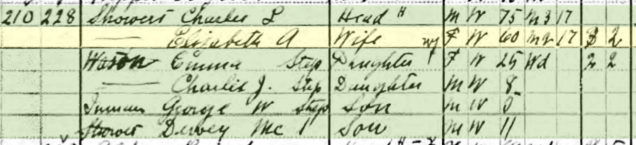 210 228 Showers Charles L Head H M W 75 M3 17
— Elizabeth A Wife F W 60 M2 17 8 2
Wason Emma Step Daughter F W 25 Wd 2 2
— Charlie J. Step Daughter M W 8
Inman George W Step Son M W 5
Shower Dewey Mc Son M W 11